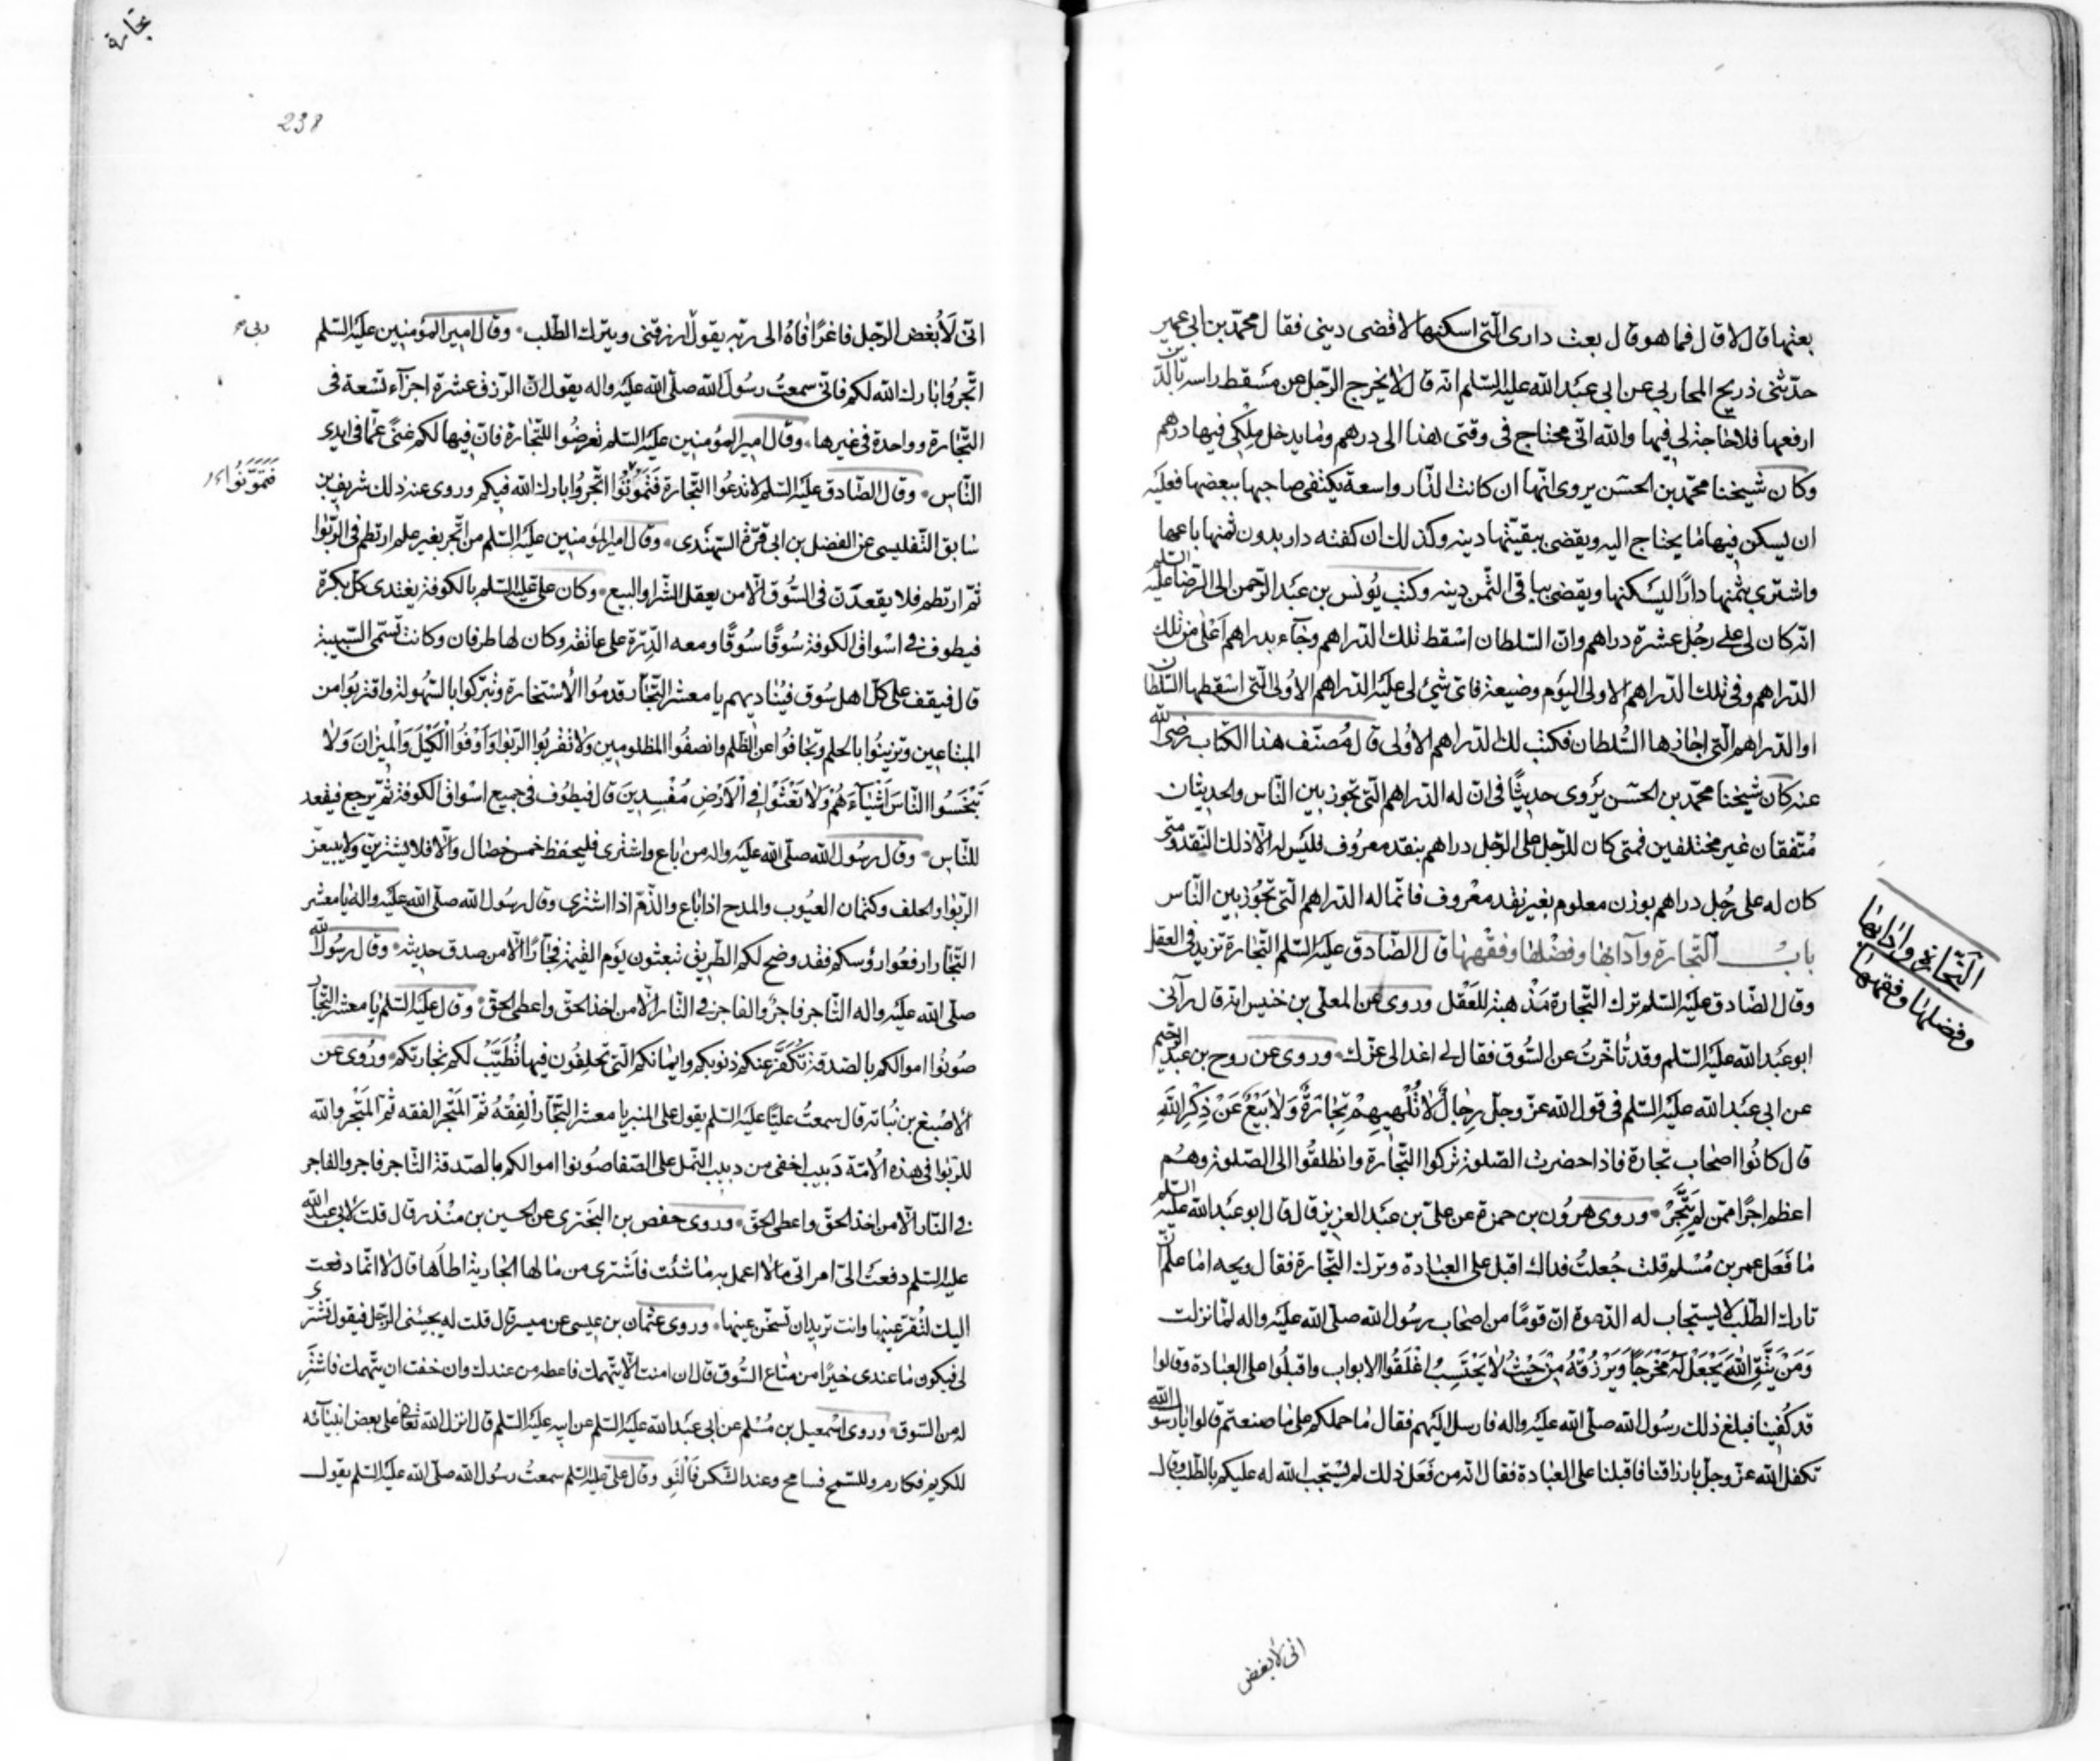 بعتها قال لا قال فما هو قال بعت دارى الّتى اسكنها لاقضى دينى فقال محمّد بن ابى عمير
حدّثنى ذريح المحاربى عن ابى عبد الله عليه السّلم انّه قال لا يخرج الرّجل من مسقط راسه بالدّين
ارفعها فلا حاجة لى فيها والله انّى محتاج فى وقتى هذا الى درهم وما يدخل ملكى فيها درهم
وكان شيخنا محمّد بن الحسن يروى انّها ان كانت الدّار واسعة يكتفى صاحبها ببعضها فعليه
ان يسكن فيها ما يحتاج اليه ويقضى ببقيّتها دينه وكذلك ان كفته دار بدون ثمنها باعها
واشترى بثمنها دارًا ليسكنها ويقضى بباقى الثّمن دينه وكتب يُونس بن عبد الرّحمن الى الرّضا عليه السّلم
انّه كان لى على رجُل عشرة دراهم وانّ السّلطان اسقط تلك الدّراهم وجآء بدراهم اعلى من تلك
الدّراهم وفى تلك الدّراهم الاولى اليوم وضيعة فاىّ شىء لى عليه الدّراهم الاُولى الّتى اسقطها السّلطان
او الدّراهم الّتى اجازها السُّلطان فكتب لك الدّراهم الاُولى قال مُصنّف هذا الكتاب رضى الله
عنه كان شيخنا محمّد بن الحسن يَروى حديثًا فى انّ له الدّراهم الّتى تجوز بين النّاس والحديثان
مُتّفقان غير مختلفين فمتى كان للرّجل على الرّجل دراهم بنقد معرُوف فليس له الّا ذلك النّقد ومتى
كان له على رجُل دراهم بوزن معلوم بغير نقد معْروف فانّما له الدّراهم الّتى تجُوز بين النّاس
بابُ التّجارة وآدابها وفضْلها وفقْهها قال الصّادق عليه السّلم التّجارة تزيد فى العقل
وقال الصّادق عليه السّلم ترك التّجارة مَذْهبة للعَقْل وروى عن المعلّى بن خنيس انّه قال رآنى
ابو عبد الله عليه السّلم وقد تأخّرتُ عن السُّوق فقال لى اغد الى عزّك وروى عن روح بن عبد الرّحيم
عن ابى عبد الله عليه السّلم فى قول الله عزّ وجلّ رِجالٌ لا تُلْهيهِمْ تِجارَةٌ وَلا بَيْعٌ عَنْ ذِكْرِ اللهِ
قال كانُوا اصحاب تجارة فاذا حضرت الصّلوة تركوا التّجارة وانطلقُوا الى الصّلوة وهُم
اعظم اجرًا ممّن لم يَتَّجِرْ وروى هرُون بن حمزة عن علىّ بن عبد العزيز قال قال ابو عبد الله عليه السّلم
ما فَعَل عمر بن مُسْلم قلت جُعلتُ فداك اقبل على العبادة وترك التّجارة فقال ويحه اما علم انّ
تارك الطّلب لا يستجاب له الدّعوة انّ قومًا من اصحاب رسُول الله صلّى الله عليه واله لمّا نزلت
وَمَنْ يَتَّقِ اللهَ يَجْعَلْ لَهُ مَخْرَجًا وَيَرْزُقْهُ مِنْ حَيْثُ لا يَحْتَسِبُ اغْلَقُوا الابواب واقبلُوا على العبادة وقالوا
قد كُفينا فبلغ ذلك رسُول الله صلّى الله عليه واله فارسل اليهم فقال ما حملكم على ما صنعتم قالوا يا رسول الله
تكفّل الله عزّ وجلّ بارزاقنا فاقبلنا على العبادة فقال انّه من فَعَل ذلك لم يُستجب الله له عليكم بالطّلب وقال
التّجارة وادابها
وفضلها وفقهها
انى لابغض
تجارة
238
انّى لَاُبغض الرّجل فاغرًا فاهُ الى ربّه يقول ارزقنى ويترك الطّلب وقال امير المؤمنين عليه السّلم
اتّجرُوا بارك الله لكم فانّى سمعتُ رسُول الله صلّى الله عليه واله يقول انّ الرّزق عشرة اجزآء تسْعة فى
التّجارة وواحدة فى غيرها وقال امير المؤمنين عليه السّلم تعرضُوا للتّجارة فانّ فيها لكم غنىً عمّا فى ايدى
النّاس وقال الصّادق عليه السّلم لا تدعُوا التّجارة فَتهُونُوا اتّجرُوا بارك الله فيكم وروى عنه ذلك شريف بن
سابق التّفليسى عن الفضل بن ابى قرّة السّهندى وقال امير المؤمنين عليه السّلم من اتّجر بغير علم ارتطم فى الرّبوا
ثمّ ارتطم فلا يقعدنّ فى السُّوق الّا من يعقل الشّرا والبيع وكان علىّ عليه السّلم بالكوفة يغتدى كلّ بكرة
فيطوف فى اسْواق الكوفة سُوقًا سُوقًا ومعه الدّرّة على عاتقه وكان لها طرفان وكانت تسمّى السّبيبة
قال فيقف على كلّ اهل سُوق فيُناديهم يا معشر التّجّار قدمُوا الأسْتخارة وتبرّكوا بالسّهولة واقتربُوا من
المبتاعين وتزينُوا بالحلم وتجافوا عن الظّلم وانصفُوا المظلومين ولا تقْربُوا الرّبوا وَاَوْفُوا الْكَيْلَ وَالْميزانَ وَلا
تَبْخَسُوا النّاسَ اَشْيآءَهُمْ وَلا تَعْثَوْا فِى الْاَرْضِ مُفْسِدينَ قال فيطُوف فى جميع اسْواق الكوفة ثمّ يرجع فيقعد
للنّاس وقال رسُول الله صلّى الله عليه واله من باع واشترى فليحفظ خمس خصال والّا فلا يشترينّ ولا يبيعنّ
الرّبوا والحلف وكتمان العيُوب والمدح اذا باع والذّمّ اذا اشترى وقال رسُول الله صلّى الله عليه واله يا معشر
التّجّار ارفعُوا رؤسكم فقد وضح لكم الطّريق تبعثون يَوم القيمة فجّارًا الّا من صدق حديثه وقال رسُول الله
صلّى الله عليه واله التّاجر فاجرٌ والفاجر فى النّار الّا من اخذ الحقّ واعطى الحقّ وقال عليه السّلم يا معشر التّجّار
صُونُوا اموالكم بالصّدقة تُكفّر عنكم ذنوبكم وايمانكم الّتى تحلِفُون فيها تُطَيَّبْ لكم تجارتكم ورُوى عن
الأصْبغ بن نُباته قال سمعتُ عليًّا عليه السّلم يقول على المنبر يا معشر التّجّار الْفِقْهُ ثمّ المتْجر الفقه ثمّ المَتْجر والله
للرّبوا فى هذه الاُمّة دَبيب اخفى من دبيب النّمل على الصّفا صُونوا اموالكم بالصّدقة التّاجر فاجر والفاجر
فى النّار الّا من اخذ الحقّ واعطى الحقّ وروى حفص بن البَخترى عن الحسين بن منْذر قال قلت لابى عبد الله
عليه السّلم دفعتْ الىّ امراتى مالا اعمل به ما شئت فاَشترى من مالها الجارية اطأها قال لا انّما دفعت
اليك لتُقرّ عينها وانت تريد ان تسخّن عينها وروى عثمان بن عيسى عن ميسر قال قلت له يجيئنى الرّجل فيقول تشترى
لى فيكون ما عندى خيرًا من متاع السُّوق قال ان امنت الّا يتّهمك فاعطه من عندك وان خفت ان يتّهمك فاشترِ
له من السّوق وروى اسْمعيل بن مُسْلم عن ابى عبد الله عليه السّلم عن ابيه عليه السّلم قال انزل الله تعالى على بعض انبيآئه
للكريم فكارم وللسّمح فسامح وعند الشّكس فالْتَوِ وقال علىّ عليه السّلم سمعتُ رسُول الله صلّى الله عليه السّلم يقول